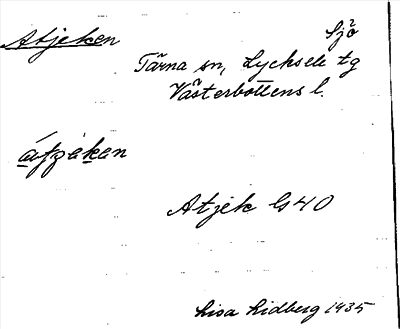 Atjeken Sjö
Tärna sn, Lycksele tg
Västerbottens l.
Atjek G40
Lisa Lidberg 1935